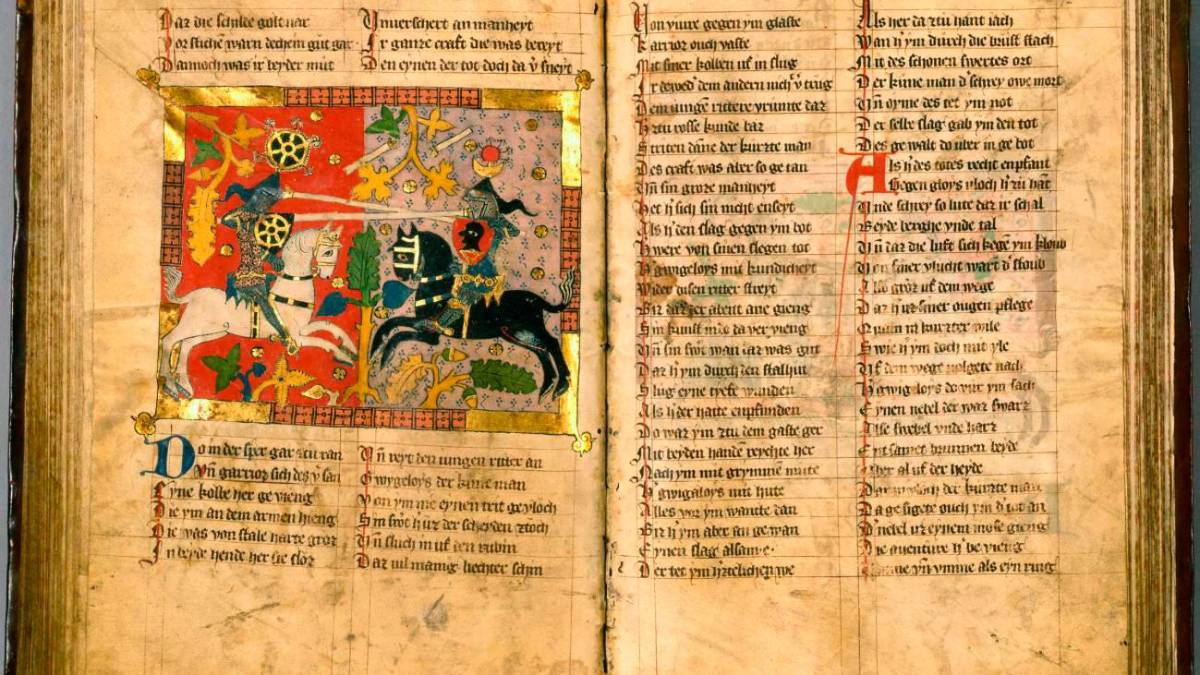 Daz die schilde golt var
Vor stichē warn dechein gūt gar
Dannoch was ir beyder mūt
Vnuerschert an manheyt
Ir ganze craft die was bereyt
Den eynen der tot doch da v̄ sneyt
Do in der sper gar zu ran
Vn̄ garrioz sich des v̄ san
Eyne kolbe her ge vieng
Die ym an dem armen hieng
Die was von stale harte groz
In beyde hende her sie sloz
Vn̄ reyt den iungen ritter an
Gwygeloys der kune man
Von ym eynen trit ge vloch
Sin swt h̄ uz der scheyden zoch
Vn̄ sluch in uf den rubin
Daz vil manig liechter schin
Von viure gegen ym glaste
Karrioz ouch vaste
Mit siner kolben uf in slug
Ir dewed' dem andern nich v̄ trug
Dem iungē rittere vrumte daz
H̄ zu rosse kunde baz
Striten dāne der kurzte man
Des craft was aber so ge tan
Vn̄ sin groze manheyt
Het h̄ sich sin nicht entseyt
Als h̄ den slag gegen ym bot
H̄ were von sinen slegen tot
H̄ gwigeloys mit kundicheyt
Wider disen ritter streyt
Biz daz der abent ane gieng
Sin kunst in da ver vieng
Vn̄ sin swt wan iz was gut
Daz h̄ ym durch den stalhut
Slug eyne tyefe wunden
Als h̄ der hatte enpfunden
Do waz ym ztu dem gaste ger
Mit beyden handē rychte her
Nach ym mit grymme mute
H̄ gwigaloys mit hute
Alles vor ym wante dan
Biz h̄ ym aber an ge wan
Eynen slag alsam e
Der tet ym h̄ztelichen we
Als her da ztu hant iach
Wan h̄ ym durch die brust stach
Mit des schonen swertes ort
Der kune man d' schrey owe mort
Vn̄ des tet ym not
Der selbe slag gab ym den tot
Des ge walt do uber in ge bot
Als h̄ des totes recht enpfant
Gegen gloys vloch h̄ zu hāt
Vnde schrey so lute daz ir schal
Beyde berghe vnde tal
Vn̄ daz die luft sich kegē ym kloub
Von siner vlucht wart d' stoub
Also groz uf dem wege
Daz h̄ uz siner ougen pflege
Quam in kurzter wile
Swie h̄ ym doch mit yle
Uf dem wege volgete nach
H̄ gwigeloys do vor ym sach
Eynen nebel der waz swarz
Alse swebel vnde harz
Ent samet brunnen beyde
Vber al uf der heyde
Dar in vloch der kurzte man
Da ge sigete ouch ym d' tot an
D' nebel uz eynem mose gieng
Die auenture h̄ be vieng
vmme als eyn ring